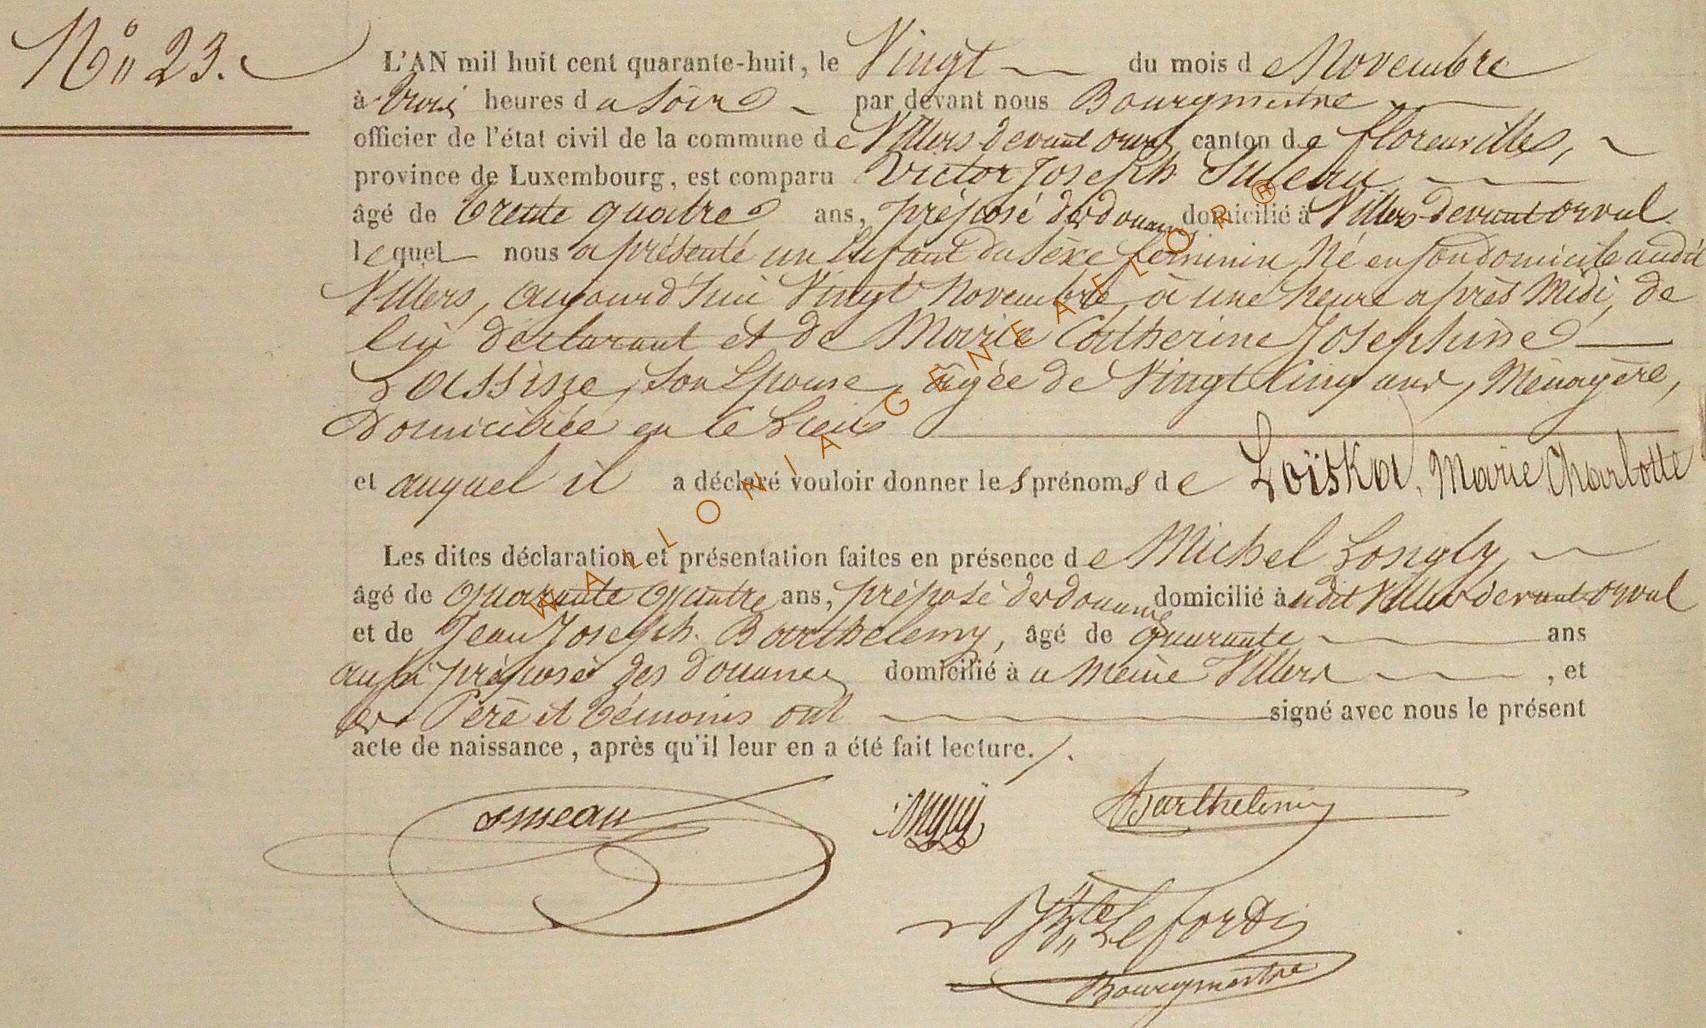 N° 23.
L'AN mil huit cent quarante-huit, le Vingt du mois de Novembre
à trois heures du Soir par devant nous Bourgmestre
officier de l'état civil de la commune de Villers devant orval canton de florenville,
province de Luxembourg, est comparu Victor Joseph
âgé de trente quatre ans, préposé des douanes domicilié à Villers-devant orval
lequel nous a présenté un Enfant du sexe feminin, Né en son domicile audit
Villers, aujourd'hui Vingt Novembre, à une heure après Midi, de
lui déclarant et de Marie Catherine Josephine
Lassine, son Epouse, âgée de Vingt cinq ans, Ménagère,
Domiciliée en ce Lieu
et auquel il a déclaré vouloir donner les prénoms de Loïska, Marie Charlotte
Les dites déclaration et présentation faites en présence de Michel Longly
âgé de quarante quatre ans, préposé des douanes domicilié audit Villers devant orval
et de Jean Joseph Barthelemy, âgé de quarante ans
aussi préposé des douanes domicilié à u même Villers, et
les Père et témoins ont signé avec nous le présent
acte de naissance, après qu'il leur en a été fait lecture./.
Barthelemy
Lefordis
Bourgmestre
WALLONIA GENEAFLOR®